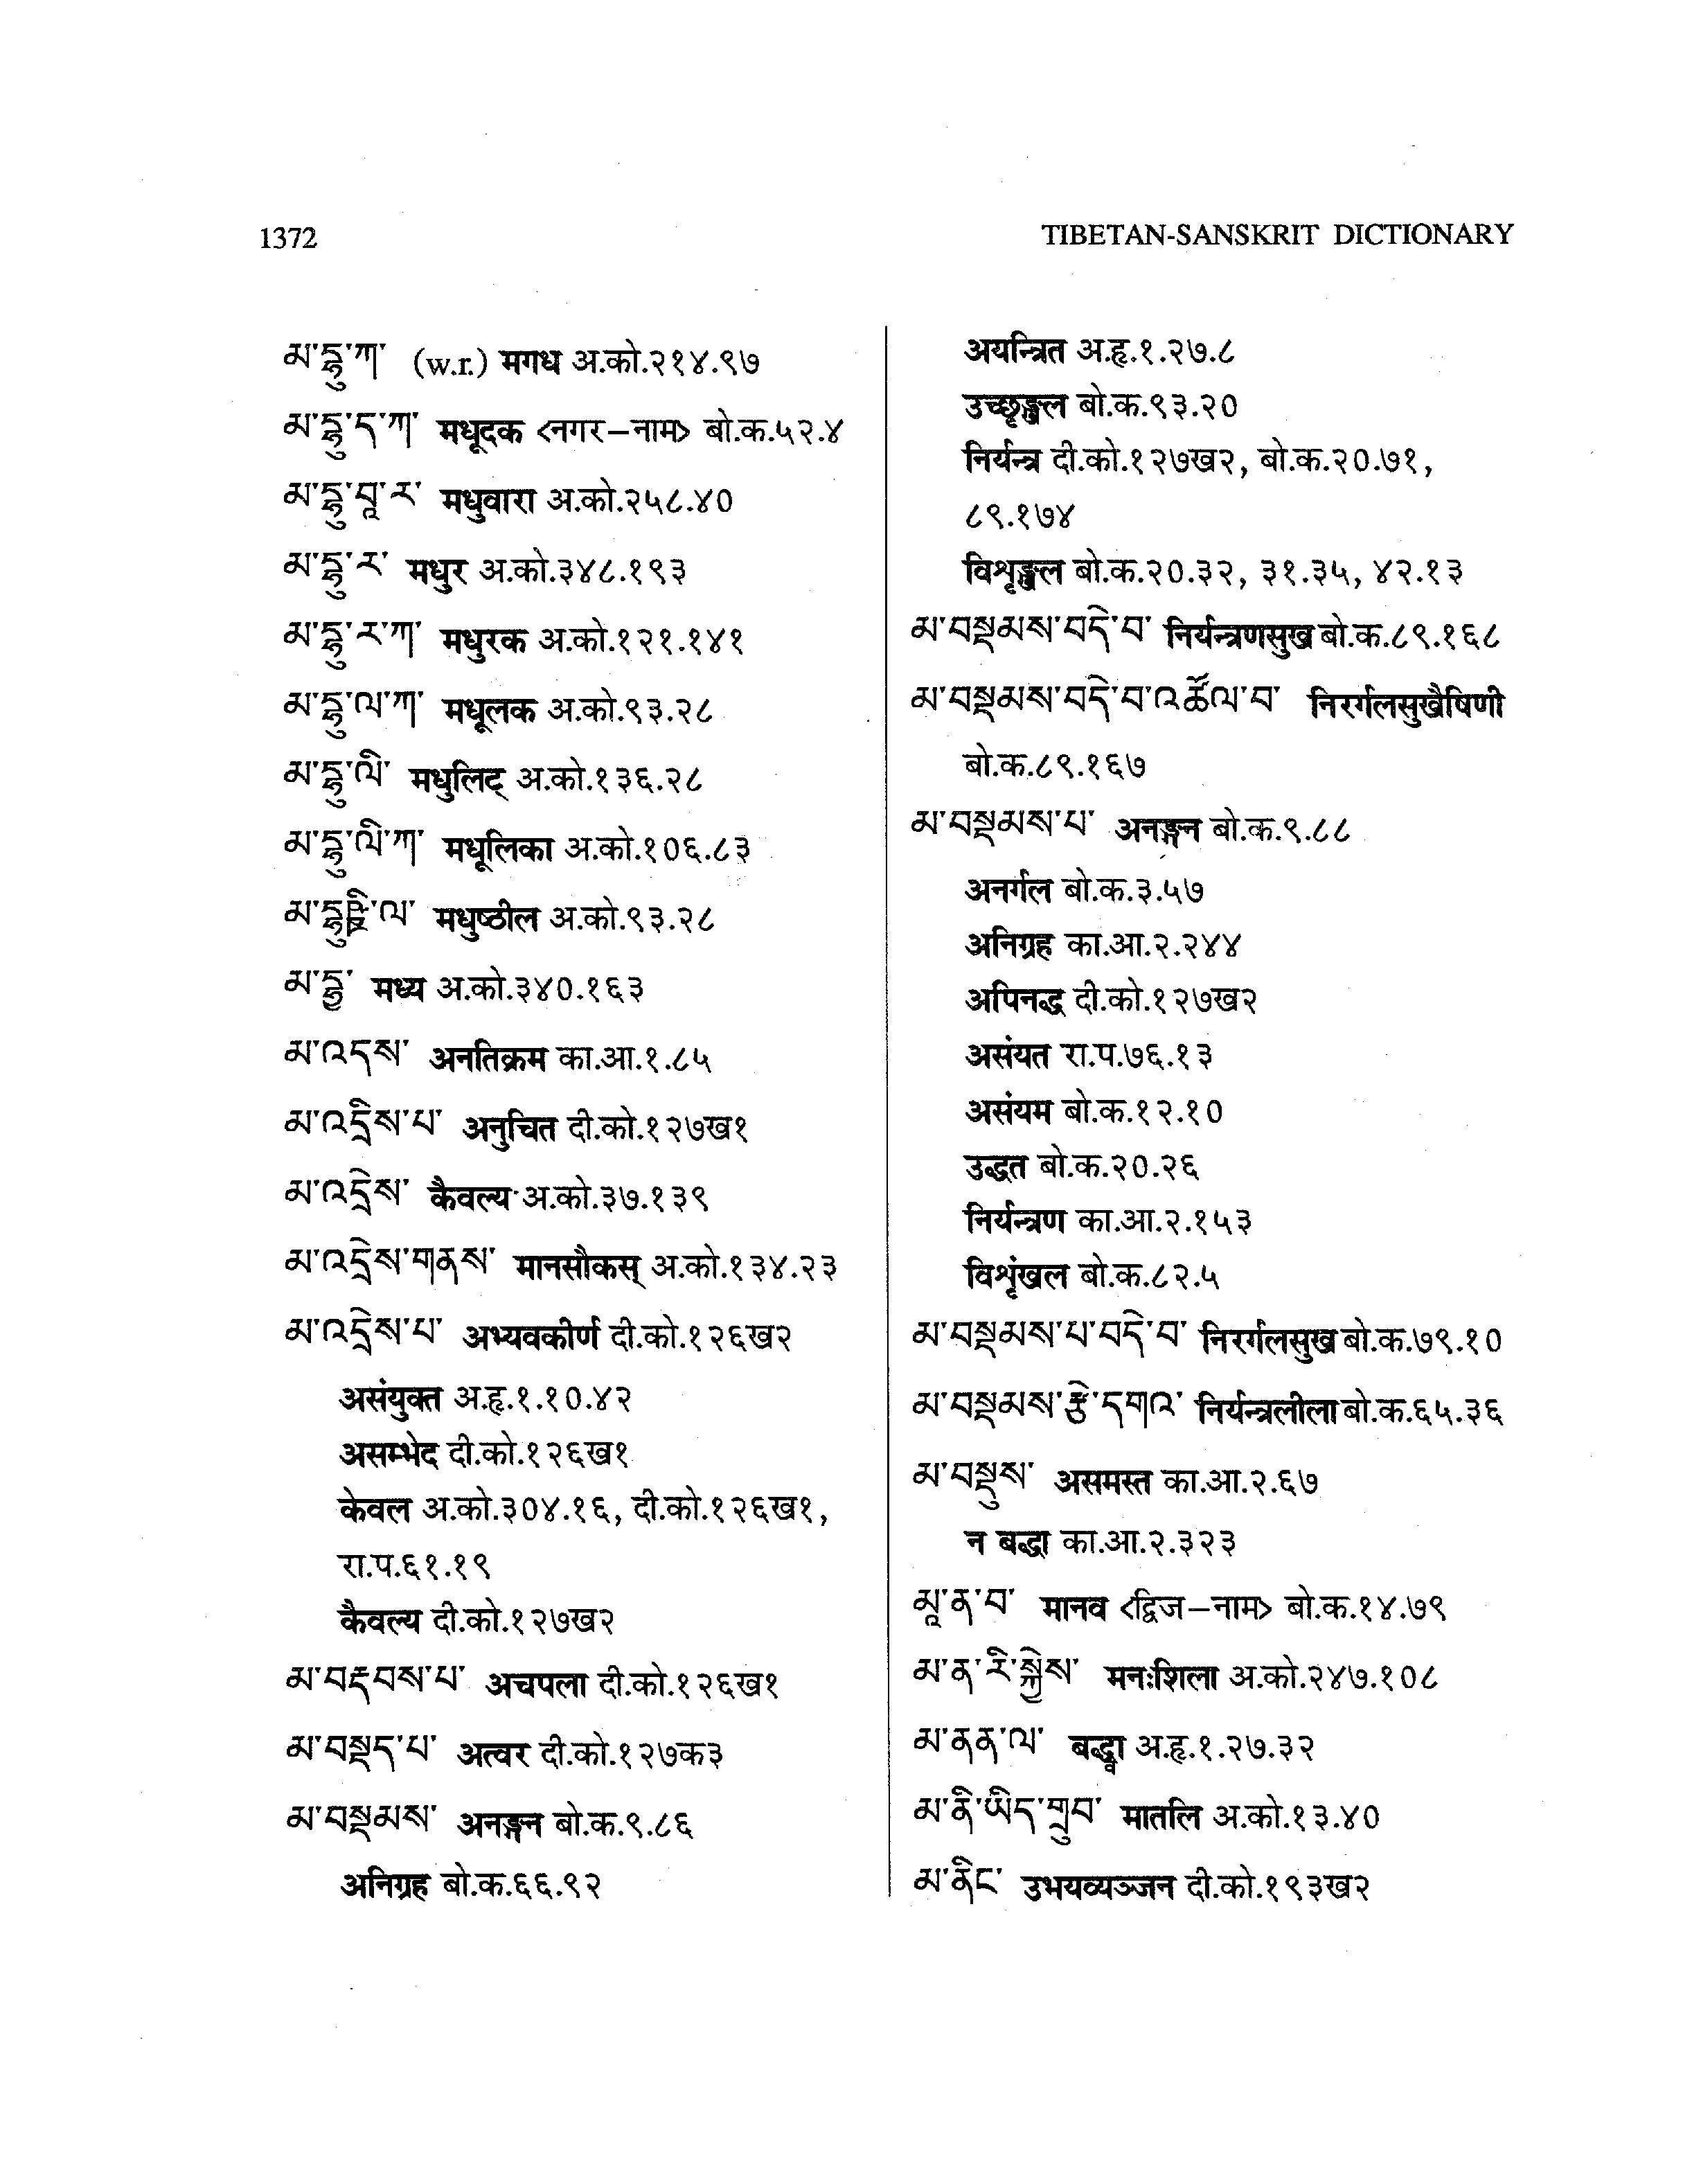 1372
TIBETAN-SANSKRIT DICTIONARY
མ་དྷུ་ཀ་ (w.r.) मगध अ.को.२१४.९७
མ་དྷུ་ད་ཀ་ मधूदक <नगर–नाम> बो.क.५२.४
མ་དྷུ་བཱ་ར་ मधुवारा अ.को.२५८.४०
མ་དྷུ་ར་ मधुर अ.को.३४८.१९३
མ་དྷུ་ར་ཀ་ मधुरक अ.को.१२१.१४१
མ་དྷུ་ལ་ཀ་ मधूलक अ.को.९३.२८
མ་དྷུ་ལི་ मधुलिट् अ.को.१३६.२८
མ་དྷུ་ལི་ཀ་ मधूलिका अ.को.१०६.८३
मधुष्ठील अ.को.९३.२८
མ་དྷྱ་ मध्य अ.को.३४०.१६३
མ་འདས་ अनतिक्रम का.आ.१.८५
མ་འདྲིས་པ་ अनुचित दी.को.१२७ख१
མ་འདྲེས་ कैवल्य अ.को.३७.१३९
མ་འདྲེས་གནས་ मानसौकस् अ.को.१३४.२३
མ་འདྲེས་པ་ अभ्यवकीर्ण दी.को.१२६ख२
असंयुक्त अ.हृ.१.१०.४२
असम्भेद दी.को.१२६ख१
केवल अ.को.३०४.१६, दी.को.१२६ख१,
रा.प.६१.१९
कैवल्य दी.को.१२७ख२
མ་བརྡབས་པ་ अचपला दी.को.१२६ख१
མ་བསྡད་པ་ अत्वर दी.को.१२७क३
མ་བསྡམས་ अनङ्गन बो.क.९.८६
अनिग्रह बो.क.६६.९२
अयन्त्रित अ.हृ.१.२७.८
उच्छृङ्खल बो.क.९३.२०
निर्यन्त्र दी.को.१२७ख२, बो.क.२०.७१,
८९.१७४
विशृङ्खल बो.क.२०.३२, ३१.३५, ४२.१३
མ་བསྡམས་བདེ་བ་ निर्यन्त्रणसुख बो.क.८९.१६८
མ་བསྡམས་བདེ་བ་འཚོལ་བ་ निरर्गलसुखैषिणी
बो.क.८९.१६७
མ་བསྡམས་པ་ अनङ्गन बो.क.९.८८
अनर्गल बो.क.३.५७
अनिग्रह का.आ.२.२४४
अपिनद्ध दी.को.१२७ख२
असंयत रा.प.७६.१३
असंयम बो.क.१२.१०
उद्धत बो.क.२०.२६
निर्यन्त्रण का.आ.२.१५३
विशृंखल बो.क.८२.५
མ་བསྡམས་པ་བདེ་བ་ निरर्गलसुख बो.क.७९.१०
མ་བསྡམས་རྩེ་དགའ་ निर्यन्त्रलीला बो.क.६५.३६
མ་བསྡུས་ असमस्त का.आ.२.६७
न बद्धा का.आ.२.३२३
མཱ་ན་བ་ मानव <द्विज–नाम> बो.क.१४.७९
མ་ན་རི་སྐྱེས་ मनःशिला अ.को.२४७.१०८
མ་ནན་ལ་ बद्ध्वा अ.हृ.१.२७.३२
མ་ནི་ཡིད་གྲུབ་ मातलि अ.को.१३.४०
མ་ནིང་ उभयव्यञ्जन दी.को.१९३ख२